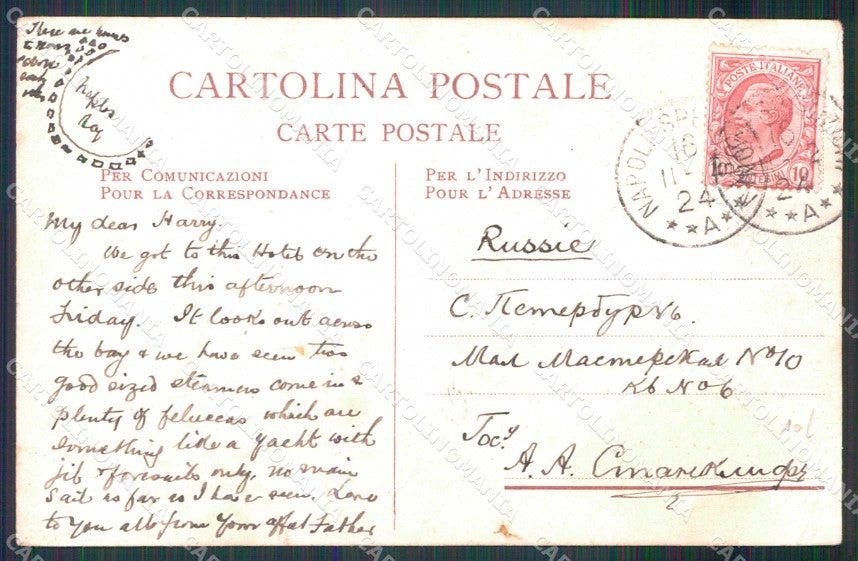 There are
down
Naples
Bay
CARTOLINA POSTALE
CARTE POSTALE
PER COMUNICAZIONI
POUR LA CORRESPONDANCE
PER L'INDIRIZZO
POUR L'ADRESSE
POSTE ITALIANE
10
NAPOLI
24
A
My dear Harry.
We got to this Hotel on the
other side this afternoon
Friday. It looks out across
the bay & we have seen two
good sized steamers come in &
plenty of feluccas which are
something like a yacht with
jib & foresails only, no main
sail as far as I have seen. Love
to you all from Your affat Father
Russie
С. Петербургъ.
Мал Мастерская №10
кв №6
Госу
А. А. Станклифъ
CARTOLINOMANIA